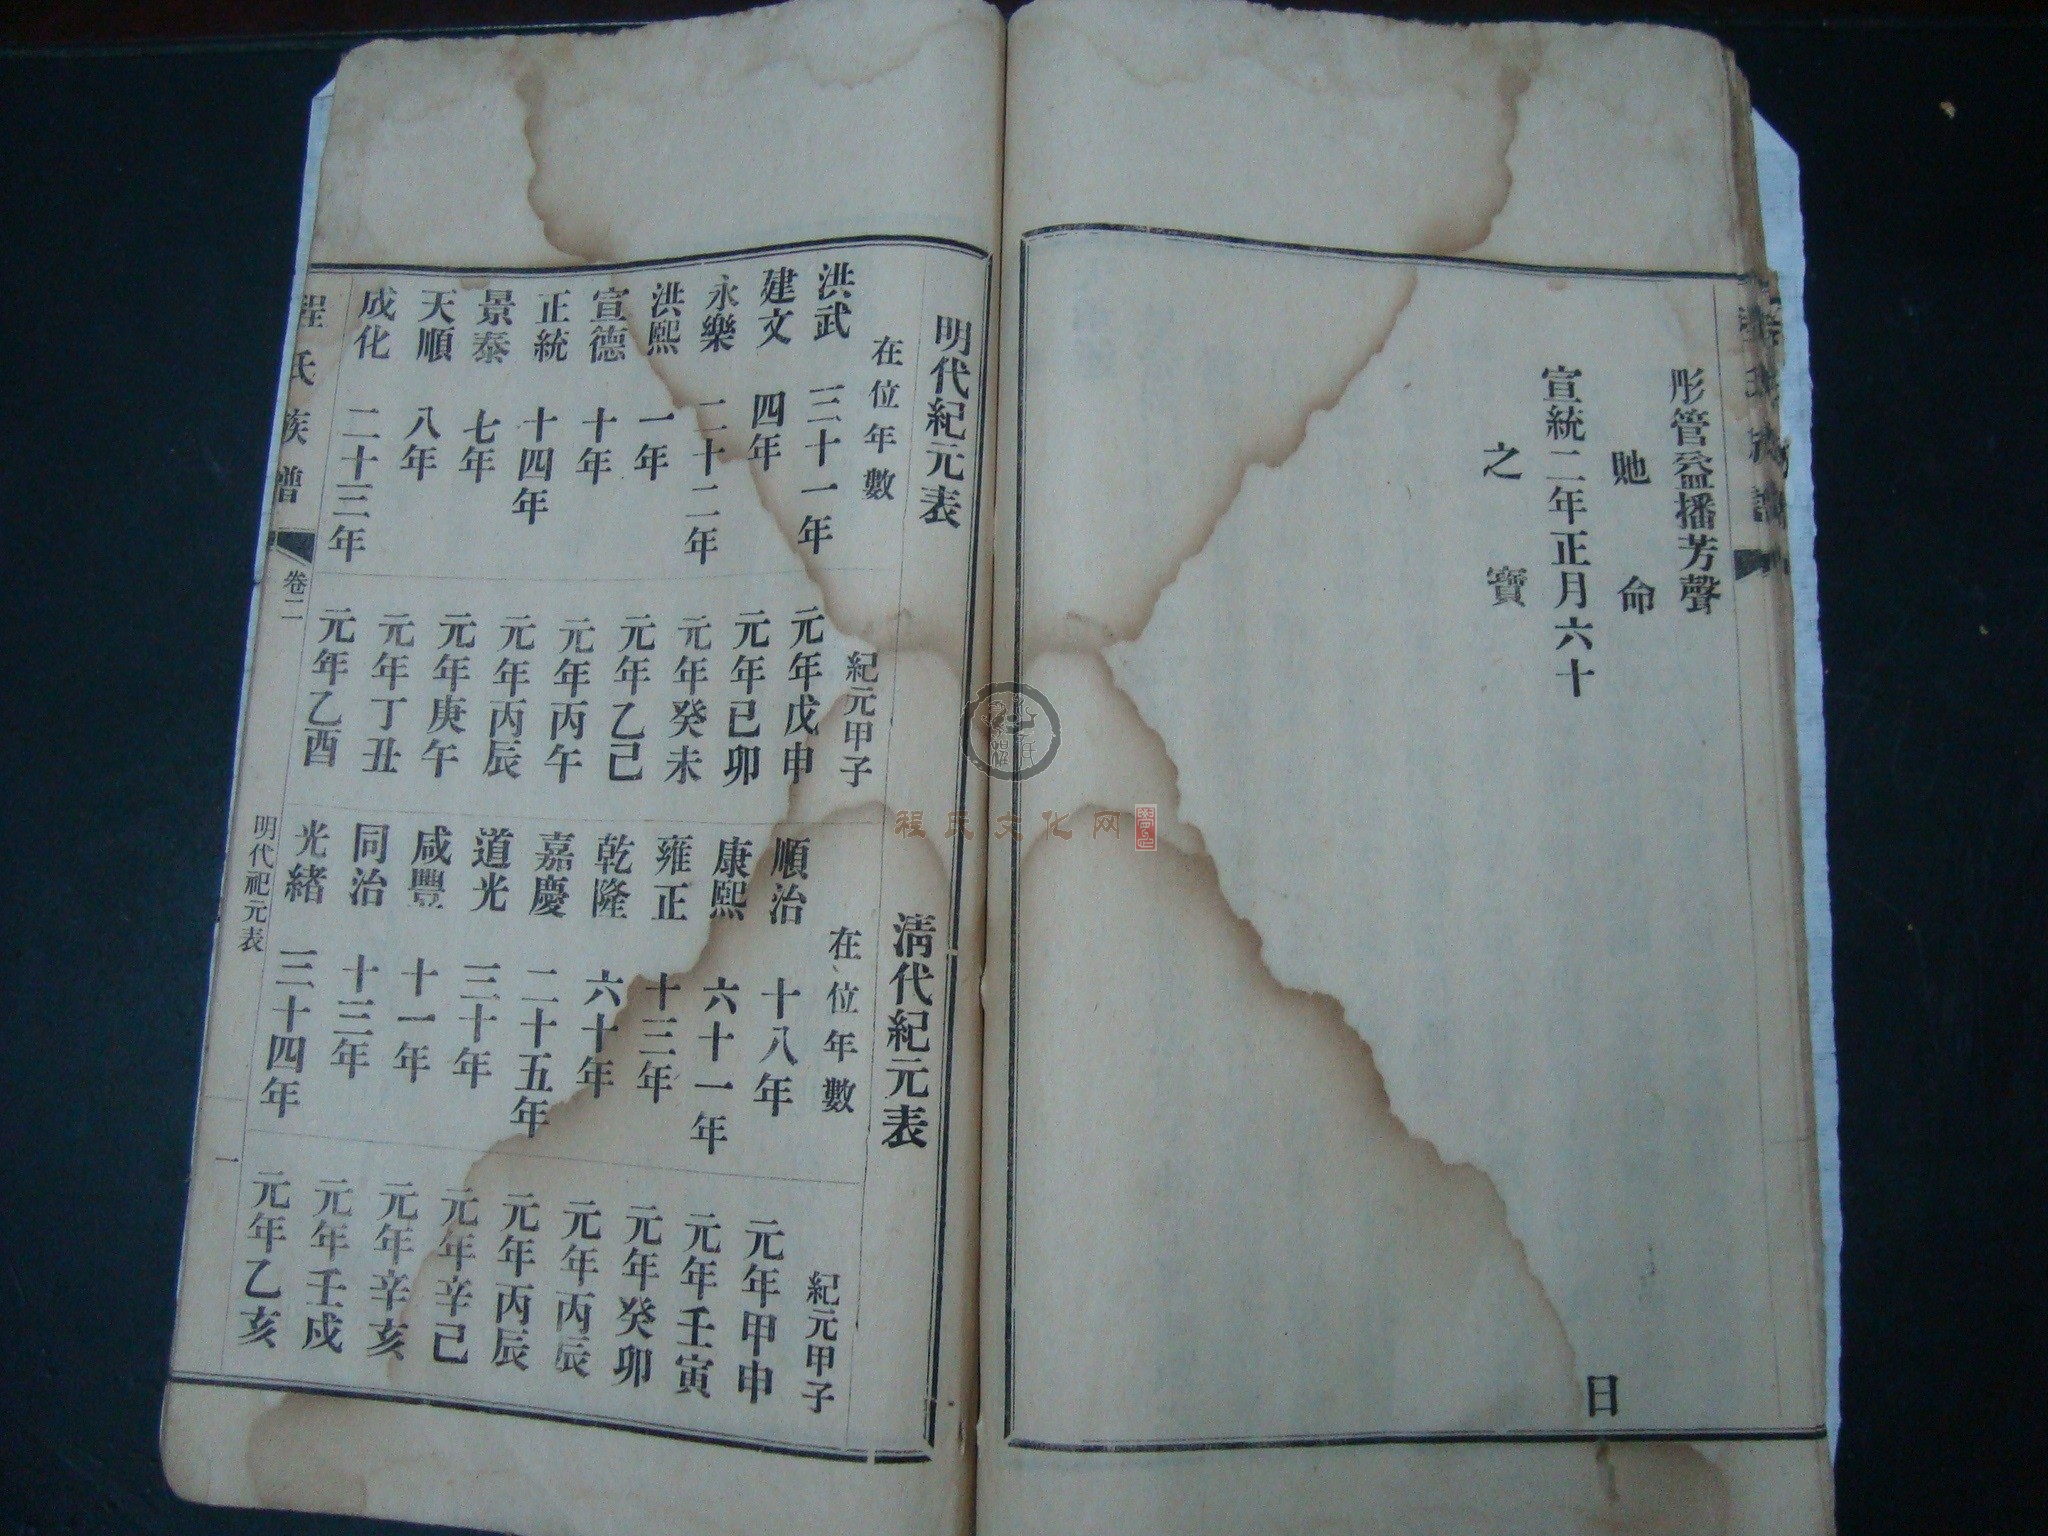 彤管益播芳聲
貤命
宣統二年正月六十日
之寶
明代紀元表
在位年數
紀元甲子
洪武 三十一年 元年戊申
建文 四年 元年已卯
永樂 二十二年 元年癸未
洪熙 一年 元年乙己
宣德 十年 元年丙午
正統 十四年 元年丙辰
景泰 七年 元年庚午
天順 八年 元年丁丑
成化 二十三年 元年乙酉
清代紀元表
在位年數
紀元甲子
順治 十八年 元年甲申
康熙 六十一年 元年壬寅
雍正 十三年 元年癸卯
乾隆 六十年 元年丙辰
嘉慶 二十五年 元年丙辰
道光 三十年 元年辛己
咸豐 十一年 元年辛亥
同治 十三年 元年壬戍
光緒 三十四年 元年乙亥
程氏族譜
卷二
明代祀元表
一
程氏文化网